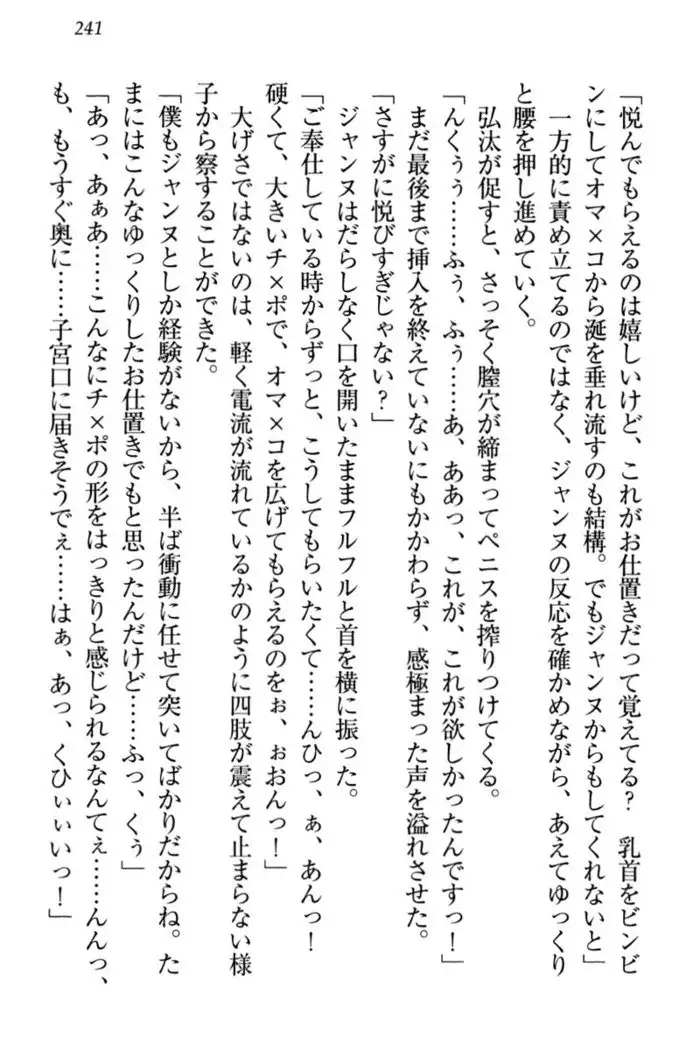 241
「悦んでもらえるのは嬉しいけど、これがお仕置きだって覚えてる? 乳首をビンビ
ンにしてオマ×コから涎を垂れ流すのも結構。でもジャンヌからもしてくれないと」
一方的に責め立てるのではなく、ジャンヌの反応を確かめながら、あえてゆっくり
と腰を押し進めていく。
弘汰が促すと、さっそく膣穴が締まってペニスを搾りつけてくる。
「んくぅぅ……ふぅ、ふぅ……あ、ああっ、これが、これが欲しかったんですっ!」
まだ最後まで挿入を終えていないにもかかわらず、感極まった声を溢れさせた。
「さすがに悦びすぎじゃない?」
ジャンヌはだらしなく口を開いたままフルフルと首を横に振った。
「ご奉仕している時からずっと、こうしてもらいたくて……んひっ、ぁ、あんっ!
硬くて、大きいチ×ポで、オマ×コを広げてもらえるのをぉ、ぉおんっ!」
大げさではないのは、軽く電流が流れているかのように四肢が震えて止まらない様
子から察することができた。
「僕もジャンヌとしか経験がないから、半ば衝動に任せて突いてばかりだからね。た
まにはこんなゆっくりしたお仕置きでもと思ったんだけど……ふっ、くぅ」
「あっ、あぁあ……こんなにチ×ポの形をはっきりと感じられるなんてぇ……んんっ、
も、もうすぐ奥に……子宮口に届きそうでぇ……はぁ、あっ、くひぃぃいっ!」